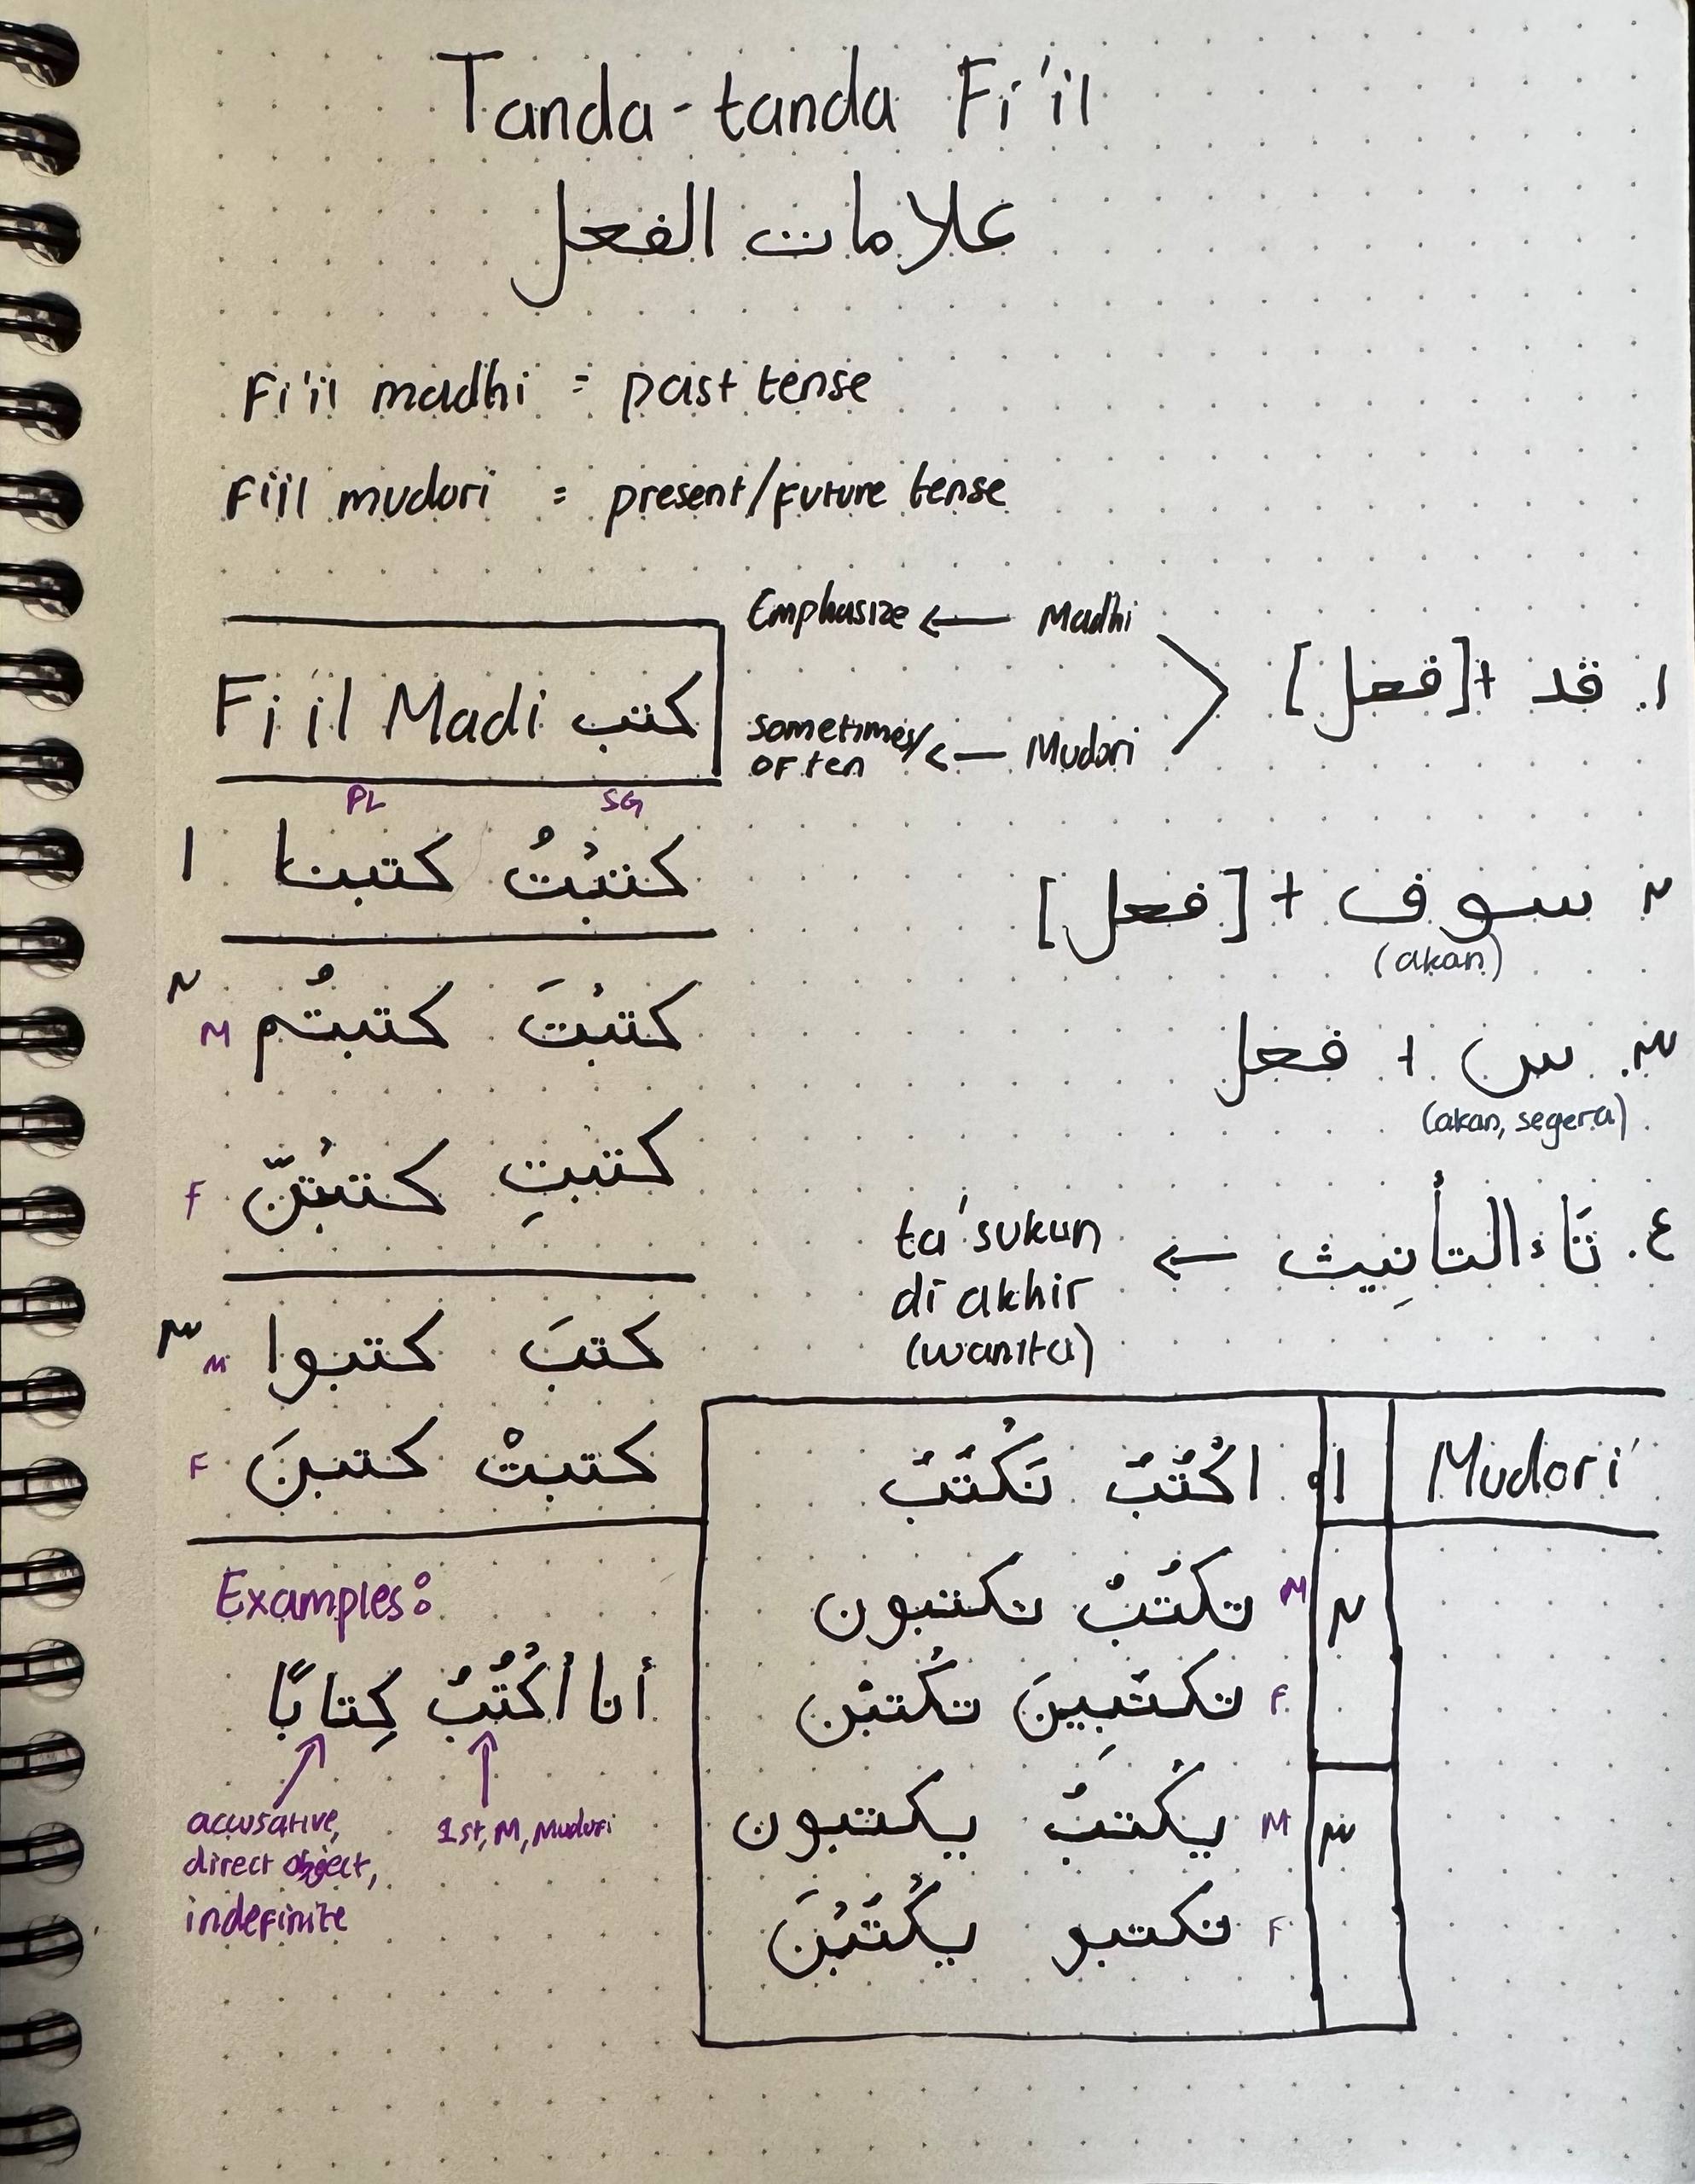 Tanda-tanda Fi'il
علامات الفعل
Fi'il madhi = past tense
Fi'il mudori = present/future tense
١. قد + [فعل]
Madhi → Emphasize
Mudori → sometimes/often
٢ سوف + [فعل]
(akan)
٣. س + فعل
(akan, segera)
٤. تَاء التأنِيث ← ta' sukun
di akhir
(wanita)
Fi'il Madi كتب
PL SG
١ كتبْتُ كتبنا
٢ M كتبْتَ كتبتُم
F كتبتِ كتبْتنّ
٣ M كتبَ كتبوا
F كتبتْ كتبنَ
Mudori'
١ اكْتُبُ نَكْتُبُ
٢ M تكتُبُ تكتبون
F تكتُبِينَ تكْتبْن
٣ M يكْتبُ يكتبون
F تكتبو يكْتُبْنَ
Examples:
أنا أكْتُبُ كِتابًا
accusative,
direct object,
indefinite
1st, M, Mudori